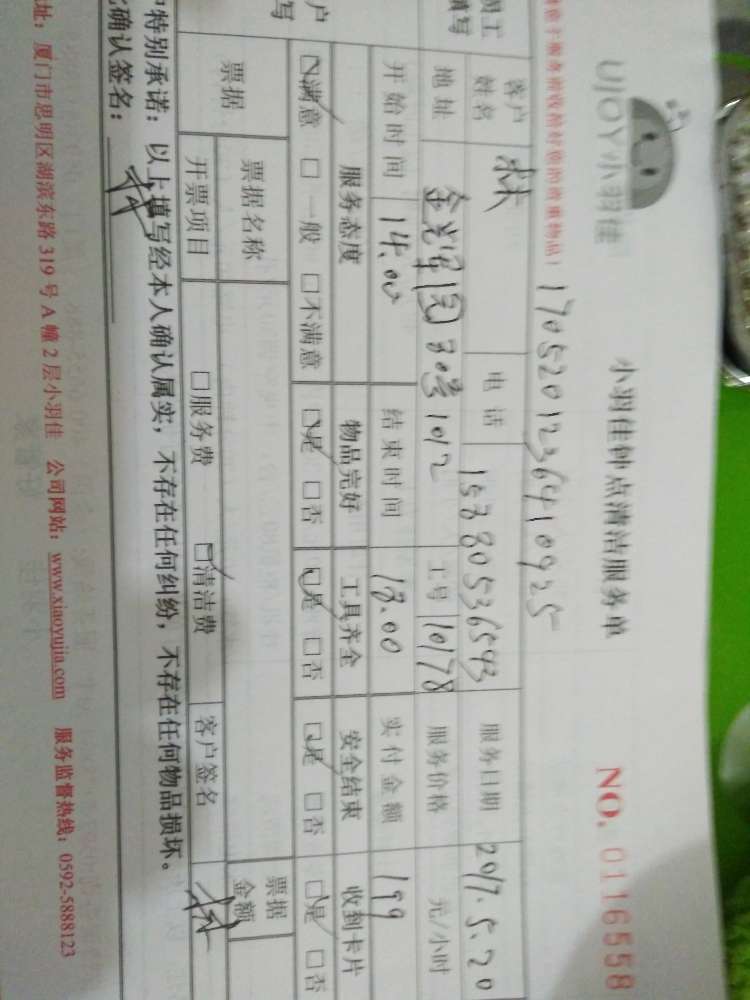 UJOY小羽佳
小羽佳钟点清洁服务单
NO. 0116558
1705201236410925
客户姓名 林 电话 15880536543 服务日期 2017.5.20
地址 金光军园30号1012 工号 10178 服务价格 元/小时
开始时间 14.00 结束时间 18.00 实付金额 199
服务态度 物品完好 工具齐全 安全结束 收到卡片
☑满意 □一般 □不满意 ☑是 □否 ☑是 □否 ☑是 □否 ☑是 □否
票据 票据名称 票据金额
开票项目 □服务费 ☑清洁费 客户签名 林
特别承诺:以上填写经本人确认属实,不存在任何纠纷,不存在任何物品损坏。
确认签名: 林
址:厦门市思明区湖滨东路 319 号 A 幢 2 层小羽佳 公司网站:www.xiaoyujia.com 服务监督热线:0592-5888123